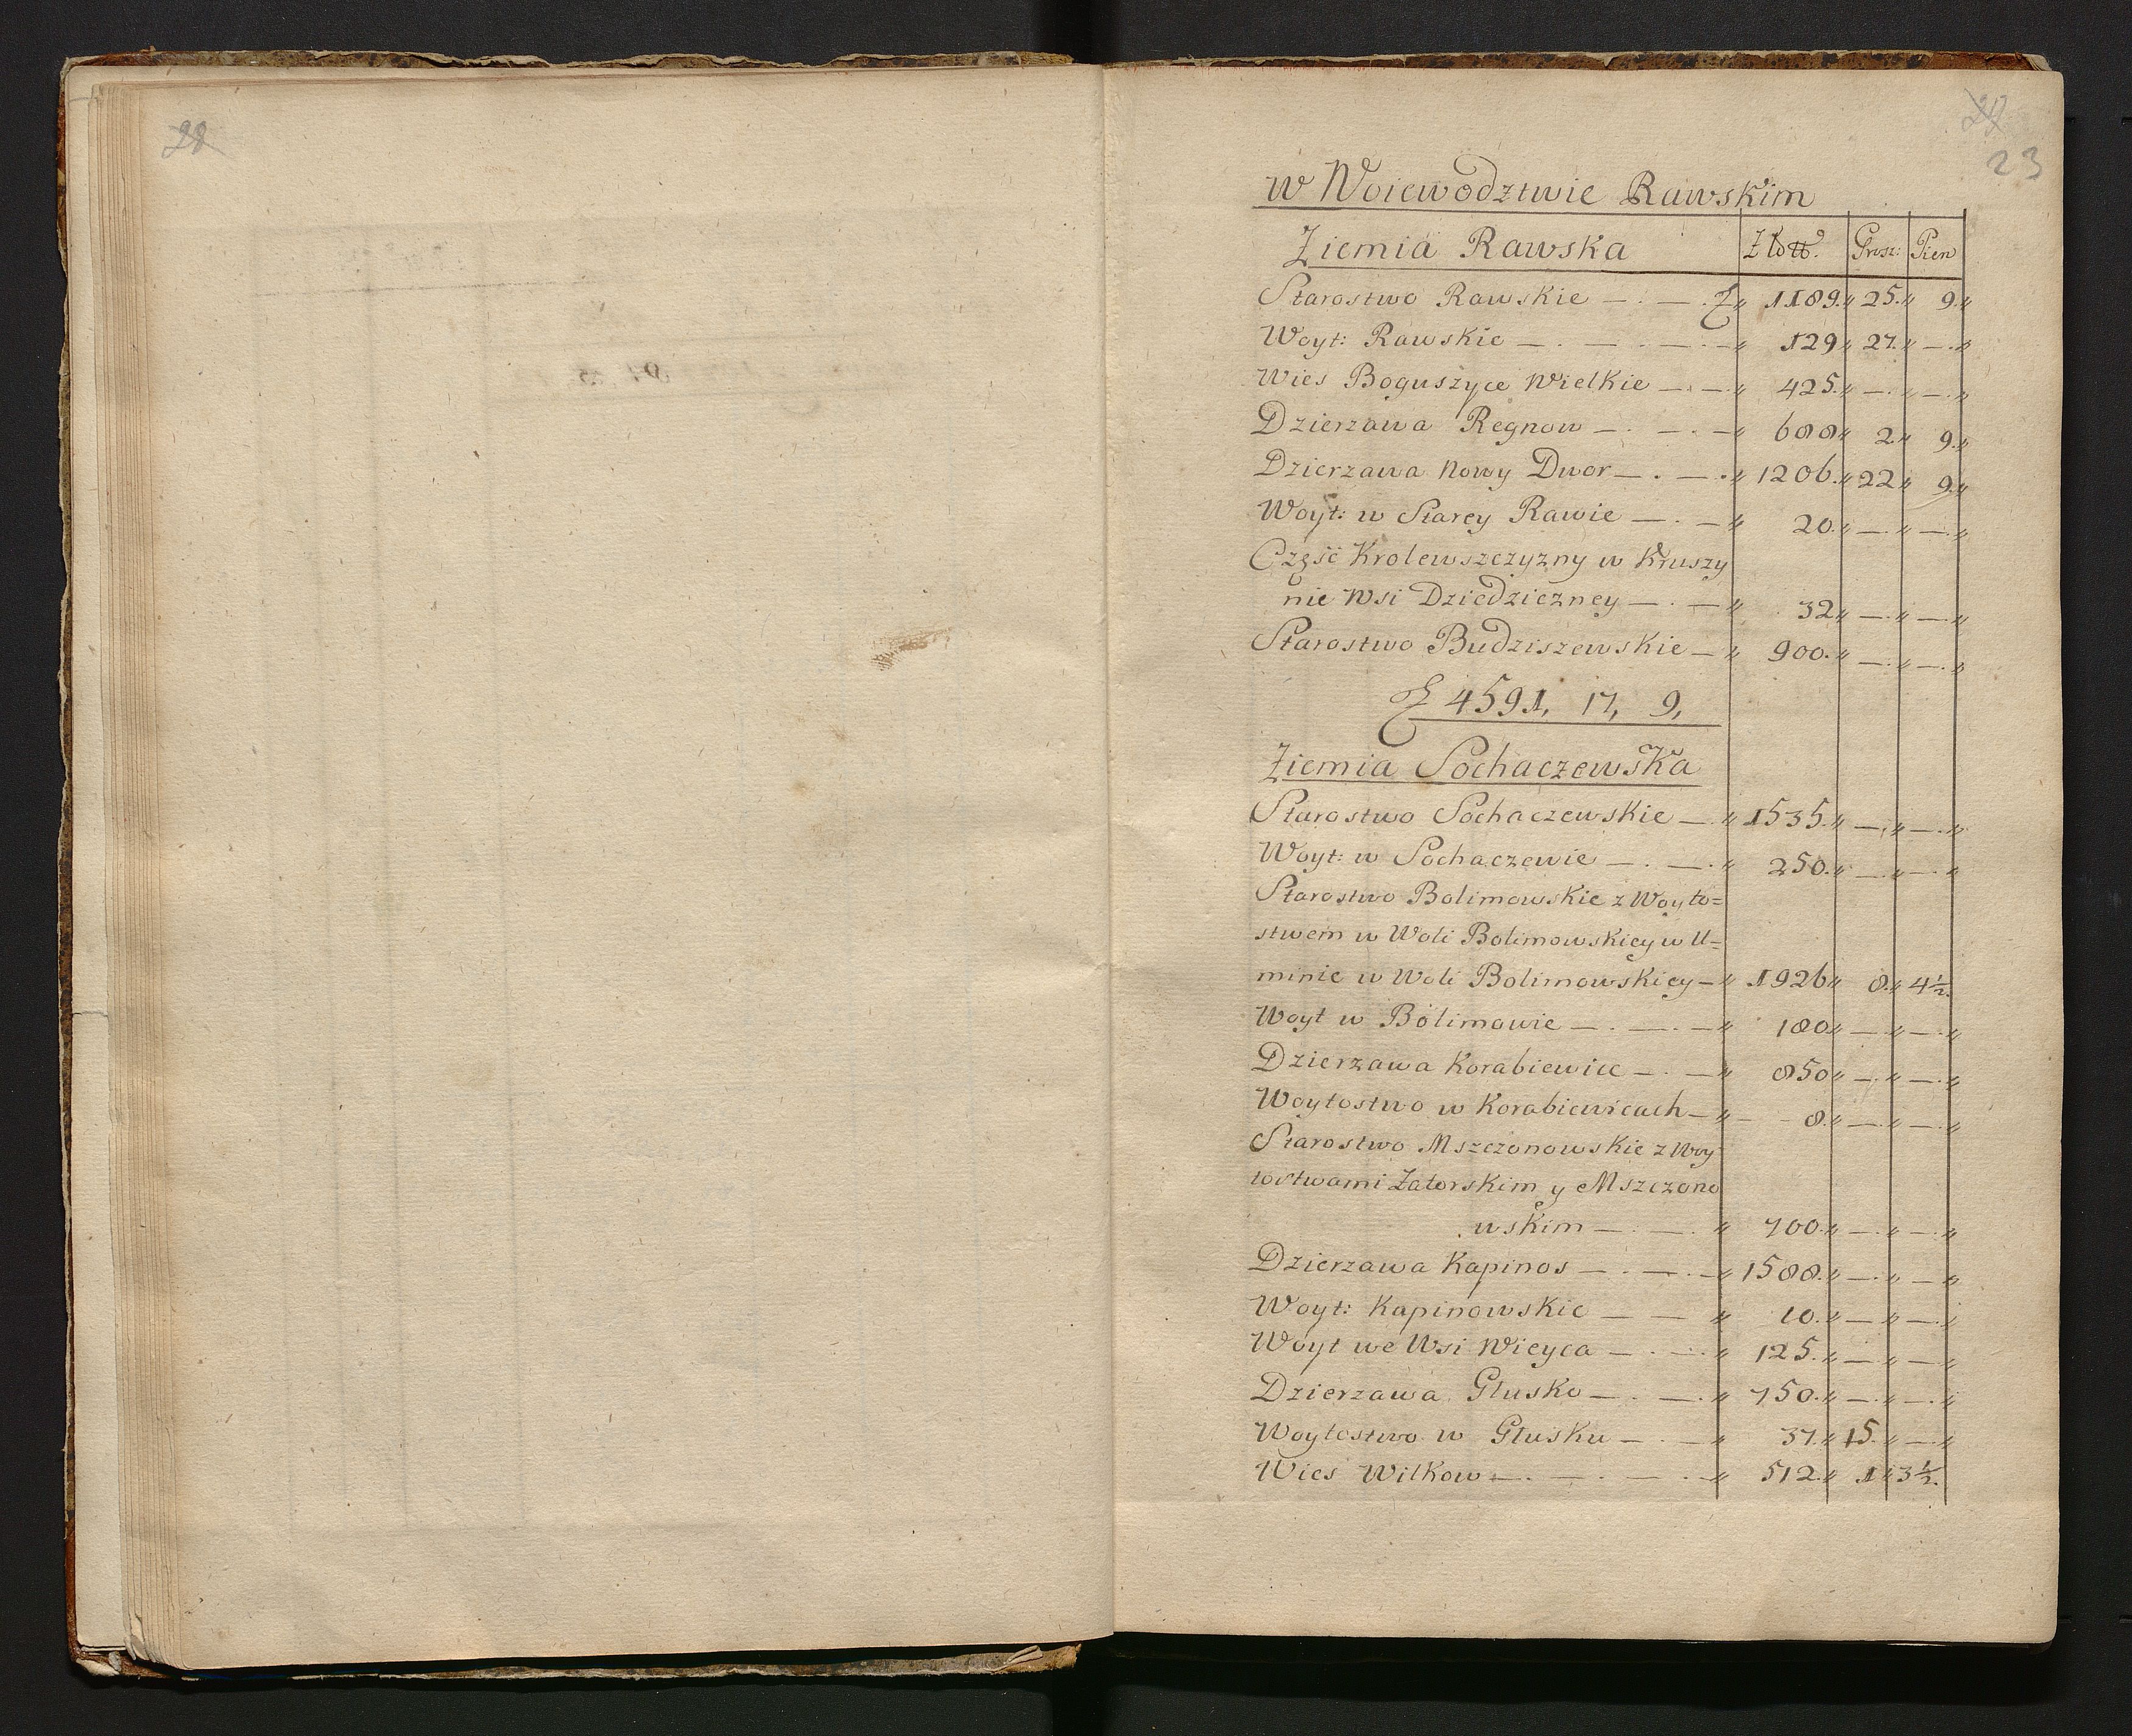 28
29
23
w Woiewodztwie Rawskim
Ziemia Rawska Złott. Grosz: Pien
Starostwo Rawskie — . — . „ 1189. „ 25. „ 9. „
Woyt: Rawskie — . — . — . — „ 129 „ 27. „ — . „
Wies Boguszyce Wielkie — . — . „ 425. „ — . „ — . „
Dzierzawa Regnow — . — . — „ 688 „ 2. „ 9. „
Dzierzawa Nowy Dwor — . — . „ 1206. „ 22 „ 9. „
Woyt: w Starey Rawie — . — „ 20. „ — . „ — . „
Część Krolewszczyzny w Kruszy
nie Wsi Dziedziczney — . — „ 32 „ — . „ — . „
Starostwo Budziszewskie — „ 900. „ — . „ — . „
4591, 17, 9,
Ziemia Sochaczewska
Starostwo Sochaczewskie — . „ 1535. „ — . „ — . „
Woyt: w Sochaczewie — . — . „ 250. „ — . „ — . „
Starostwo Bolimowskie z Woyto=
stwem w Woli Bolimowskiey w U=
minie w Woli Bolimowskiey — „ 1926 „ 8. „ 4½.
Woyt w Bolimowie — . — . — „ 180 „ — . „ — . „
Dzierzawa Korabiewice — . — „ 850 „ — . „ — . „
Woytostwo w Korabiewicach — „ 8. „ — . „ — . „
Starostwo Mszczonowskie z Woy
tostwami Zatorskim y Mszczono
wskim — . — . „ 700. „ — . „ — . „
Dzierzawa Kapinos — . — . — „ 1588. „ — . „ — „
Woyt: Kapinowskie — — „ 10. „ — „ — . „
Woyt we Wsi Wieyca — . — . „ 125. „ — „ — „
Dzierzawa Glusko — . — . „ 750. „ — . „ — . „
Woytostwo w Glusku — . — „ 37. „ 15. „ — . „
Wies Wilkow — . — . — . — „ 512. „ 1 „ 3½.